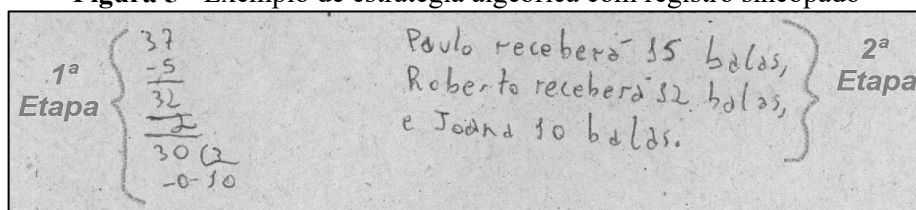 Figura 3 - Exemplo de estratégia algébrica com registro sincopado
1ª Etapa
37
-5
32
2
30 (3
-0-10
Paulo receberá 15 balas,
Roberto receberá 12 balas,
e Joana 10 balas.
2ª Etapa